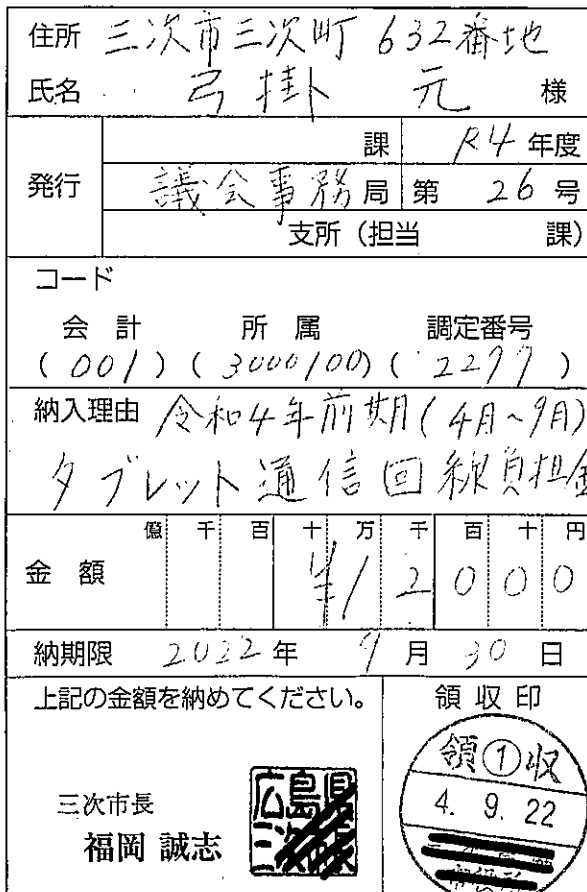 住所 三次市三次町 632番地
氏名 弓掛 元 様
発行 課 R4 年度
議会事務局 第 26 号
支所（担当 課）
コード
会計 所属 調定番号
(001) (3000100) (2277)
納入理由 令和4年前期(4月~9月)
タブレット通信回線負担金
億 千 百 十 万 千 百 十 円
金額 ¥12000
納期限 2022年 9月 30日
上記の金額を納めてください。
領収印
三次市長
福岡 誠志
広島県
領①収
4. 9. 22